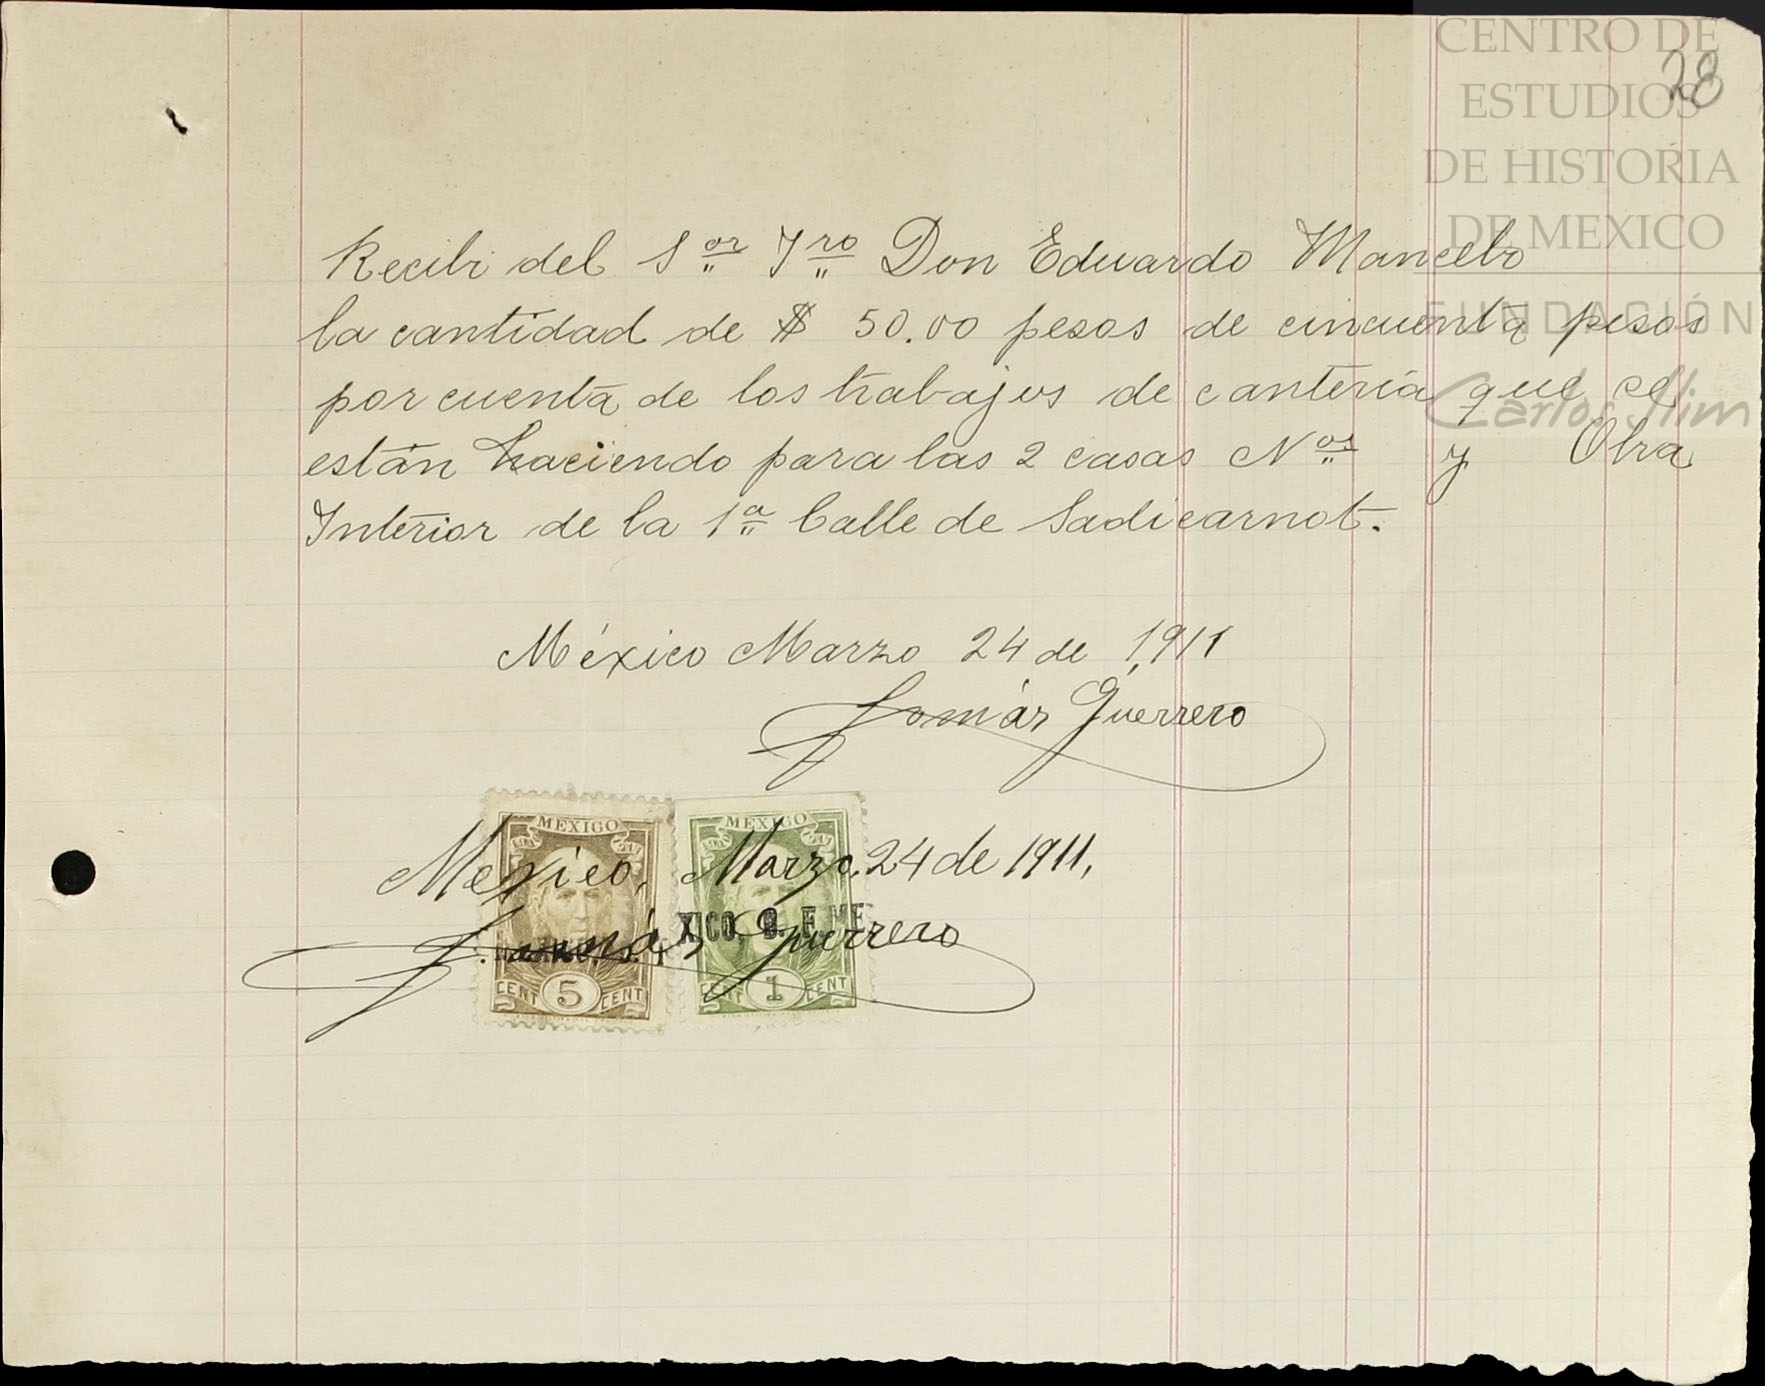 CENTRO DE
ESTUDIOS
DE HISTORIA
DE MEXICO
FUNDACIÓN
Carlos Slim
28
Recibi del Sor Yro Don Eduardo Mancebo
la cantidad de $ 50.00 pesos de cincuenta pesos
por cuenta de los trabajos de canteria que ce
están haciendo para las 2 casas Nos y Obra
Interior de la 1a Calle de Sadicarnot.
México Marzo 24 de 1,911
Tomás Guerrero
MEXICO MEXICO
Mexico, Marzo, 24 de 1911,
XICO, D. F. ME
Tomás Guerrero
CENT 5 CENT CENT 1 CENT